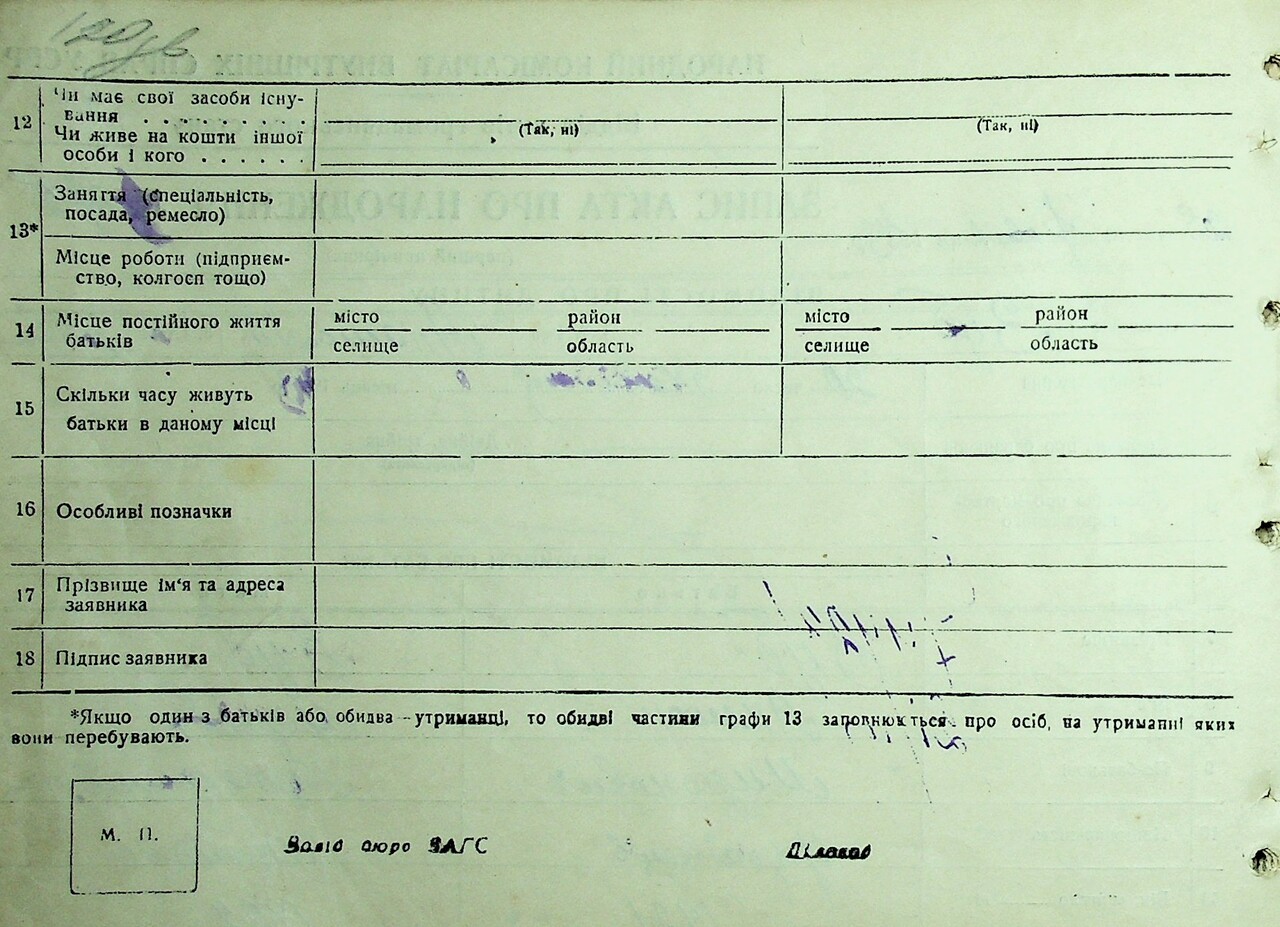 120 зв
12 Чи має свої засоби існу-
вання . . . . . . . . .
(Так, ні) (Так, ні)
Чи живе на кошти іншої
особи і кого . . . . . .
13* Заняття (спеціальність,
посада, ремесло)
Місце роботи (підприєм-
ство, колгосп тощо)
14 Місце постійного життя
батьків
місто район місто район
селище область селище область
15 Скільки часу живуть
батьки в даному місці
16 Особливі позначки
17 Прізвище ім‘я та адреса
заявника
18 Підпис заявника
*Якщо один з батьків або обидва - утриманці, то обидві частини графи 13 заповнюється про осіб, на утриманні яких
вони перебувають.
М. П.
бюро ЗАГС